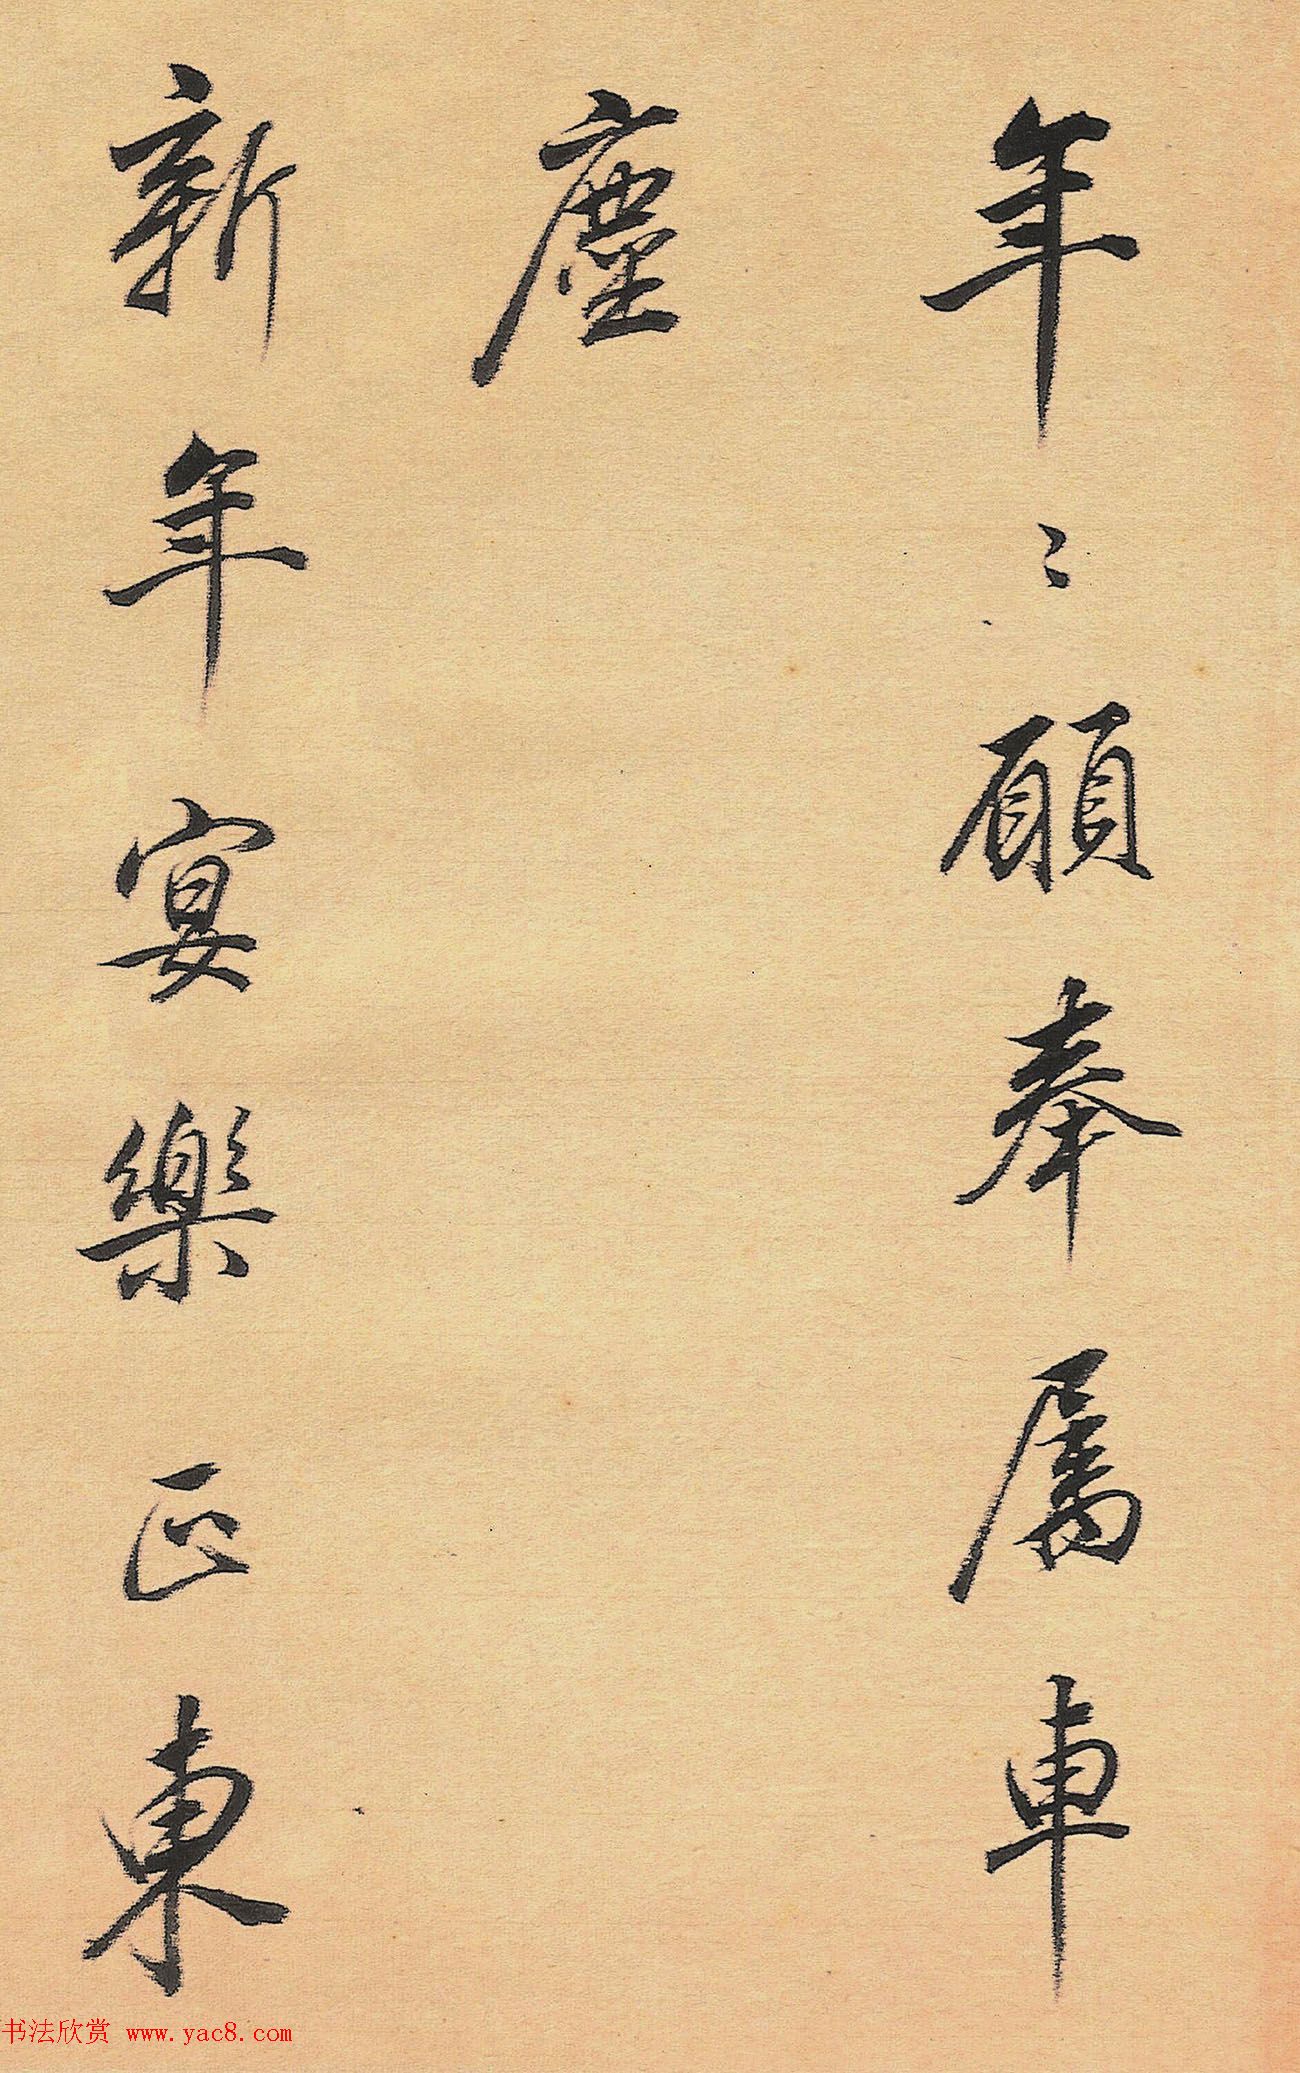 年〻願奉属車
塵
新年宴樂正東
书法欣赏 www.yac8.com